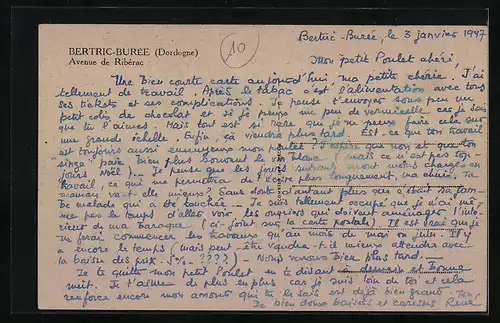 BERTRIC-BURÉE (Dordogne)
Avenue de Ribérac
10
Bertric-Burée, le 3 janvier 1947
Mon petit Poulet chéri,
Une bien courte carte aujourd'hui, ma petite chérie. J'ai
tellement de travail. Après le tabac c'est l'alimentation avec tous
ses tickets et ses complications. Je pense t'envoyer sous peu un
petit colis de chocolat et si je peux un peu de vermicelle car je sais
que tu l'aimes. Mais tout est si rare que je ne peux faire cela sur
une grande échelle. Enfin, ça viendra plus tard. Est-ce que ton travail
est toujours aussi ennuyeux mon poulet ? J'espère que non et que ton
singe paie bien plus souvent le vin blanc (mais ce n'est pas tou-
jours Noël)... Je pense que les jours suivants seront moins chargés en
travail, ce qui me permettra de t'écrire plus longuement, ma chérie. Ta
maman va-t-elle mieux ? Sans doute, d'autant plus que c'était sa jam-
be malade qui a été touchée. Je suis tellement occupé que je n'ai mê-
me pas le temps d'aller voir les ouvriers qui doivent aménager l'inté-
rieur de ma baraque (ci-joint sur la carte postale). Il est vrai que je
ne ferai commencer les travaux qu'au mois de mai ou juin. Il y
a encore le temps (mais peut-être vaudra-t-il mieux attendre avec
la baisse des prix - 5% - ????) - Nous verrons bien plus tard.
Je te quitte mon petit Poulet en te disant à demain et bonne
nuit. Je t'aime de plus en plus car je suis loin de toi et cela
renforce encore mon amour qui tu le sais est déjà bien grand. Ton
de bien doux baisers et caresses René